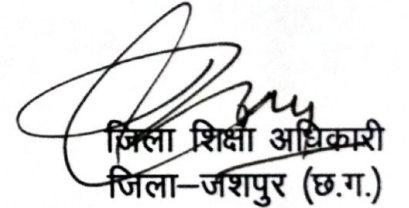 जिला शिक्षा अधिकारी
जिला–जशपुर (छ.ग.)